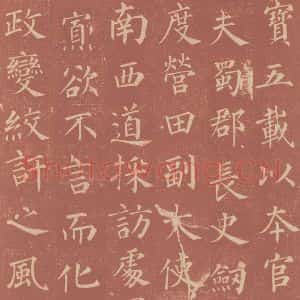 寶五載以本官
夫蜀郡長史劒
度營田副大使
南西道採訪處
寡欲不言而化
政變絞訐之風